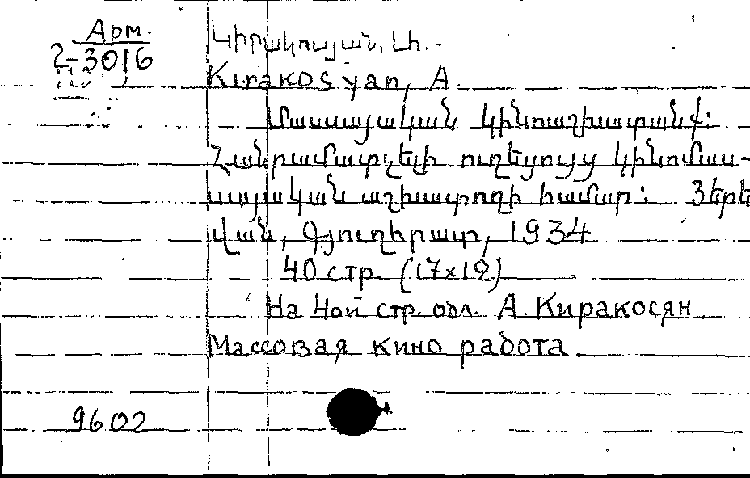 Арм.
2-3016
Կիրակոսյան, Ա.
Kırakosyan, A.
Մասսայական կինոաշխատանք:
Հանրամատչելի ուղեցույց կինոմաս-
սայական աշխատողի համար: Յերե
վան, Գյուղհրատ, 1934
40 стр. (17x12)
На 4ой стр. обл. А Киракосян
Массовая кино работа.
9602